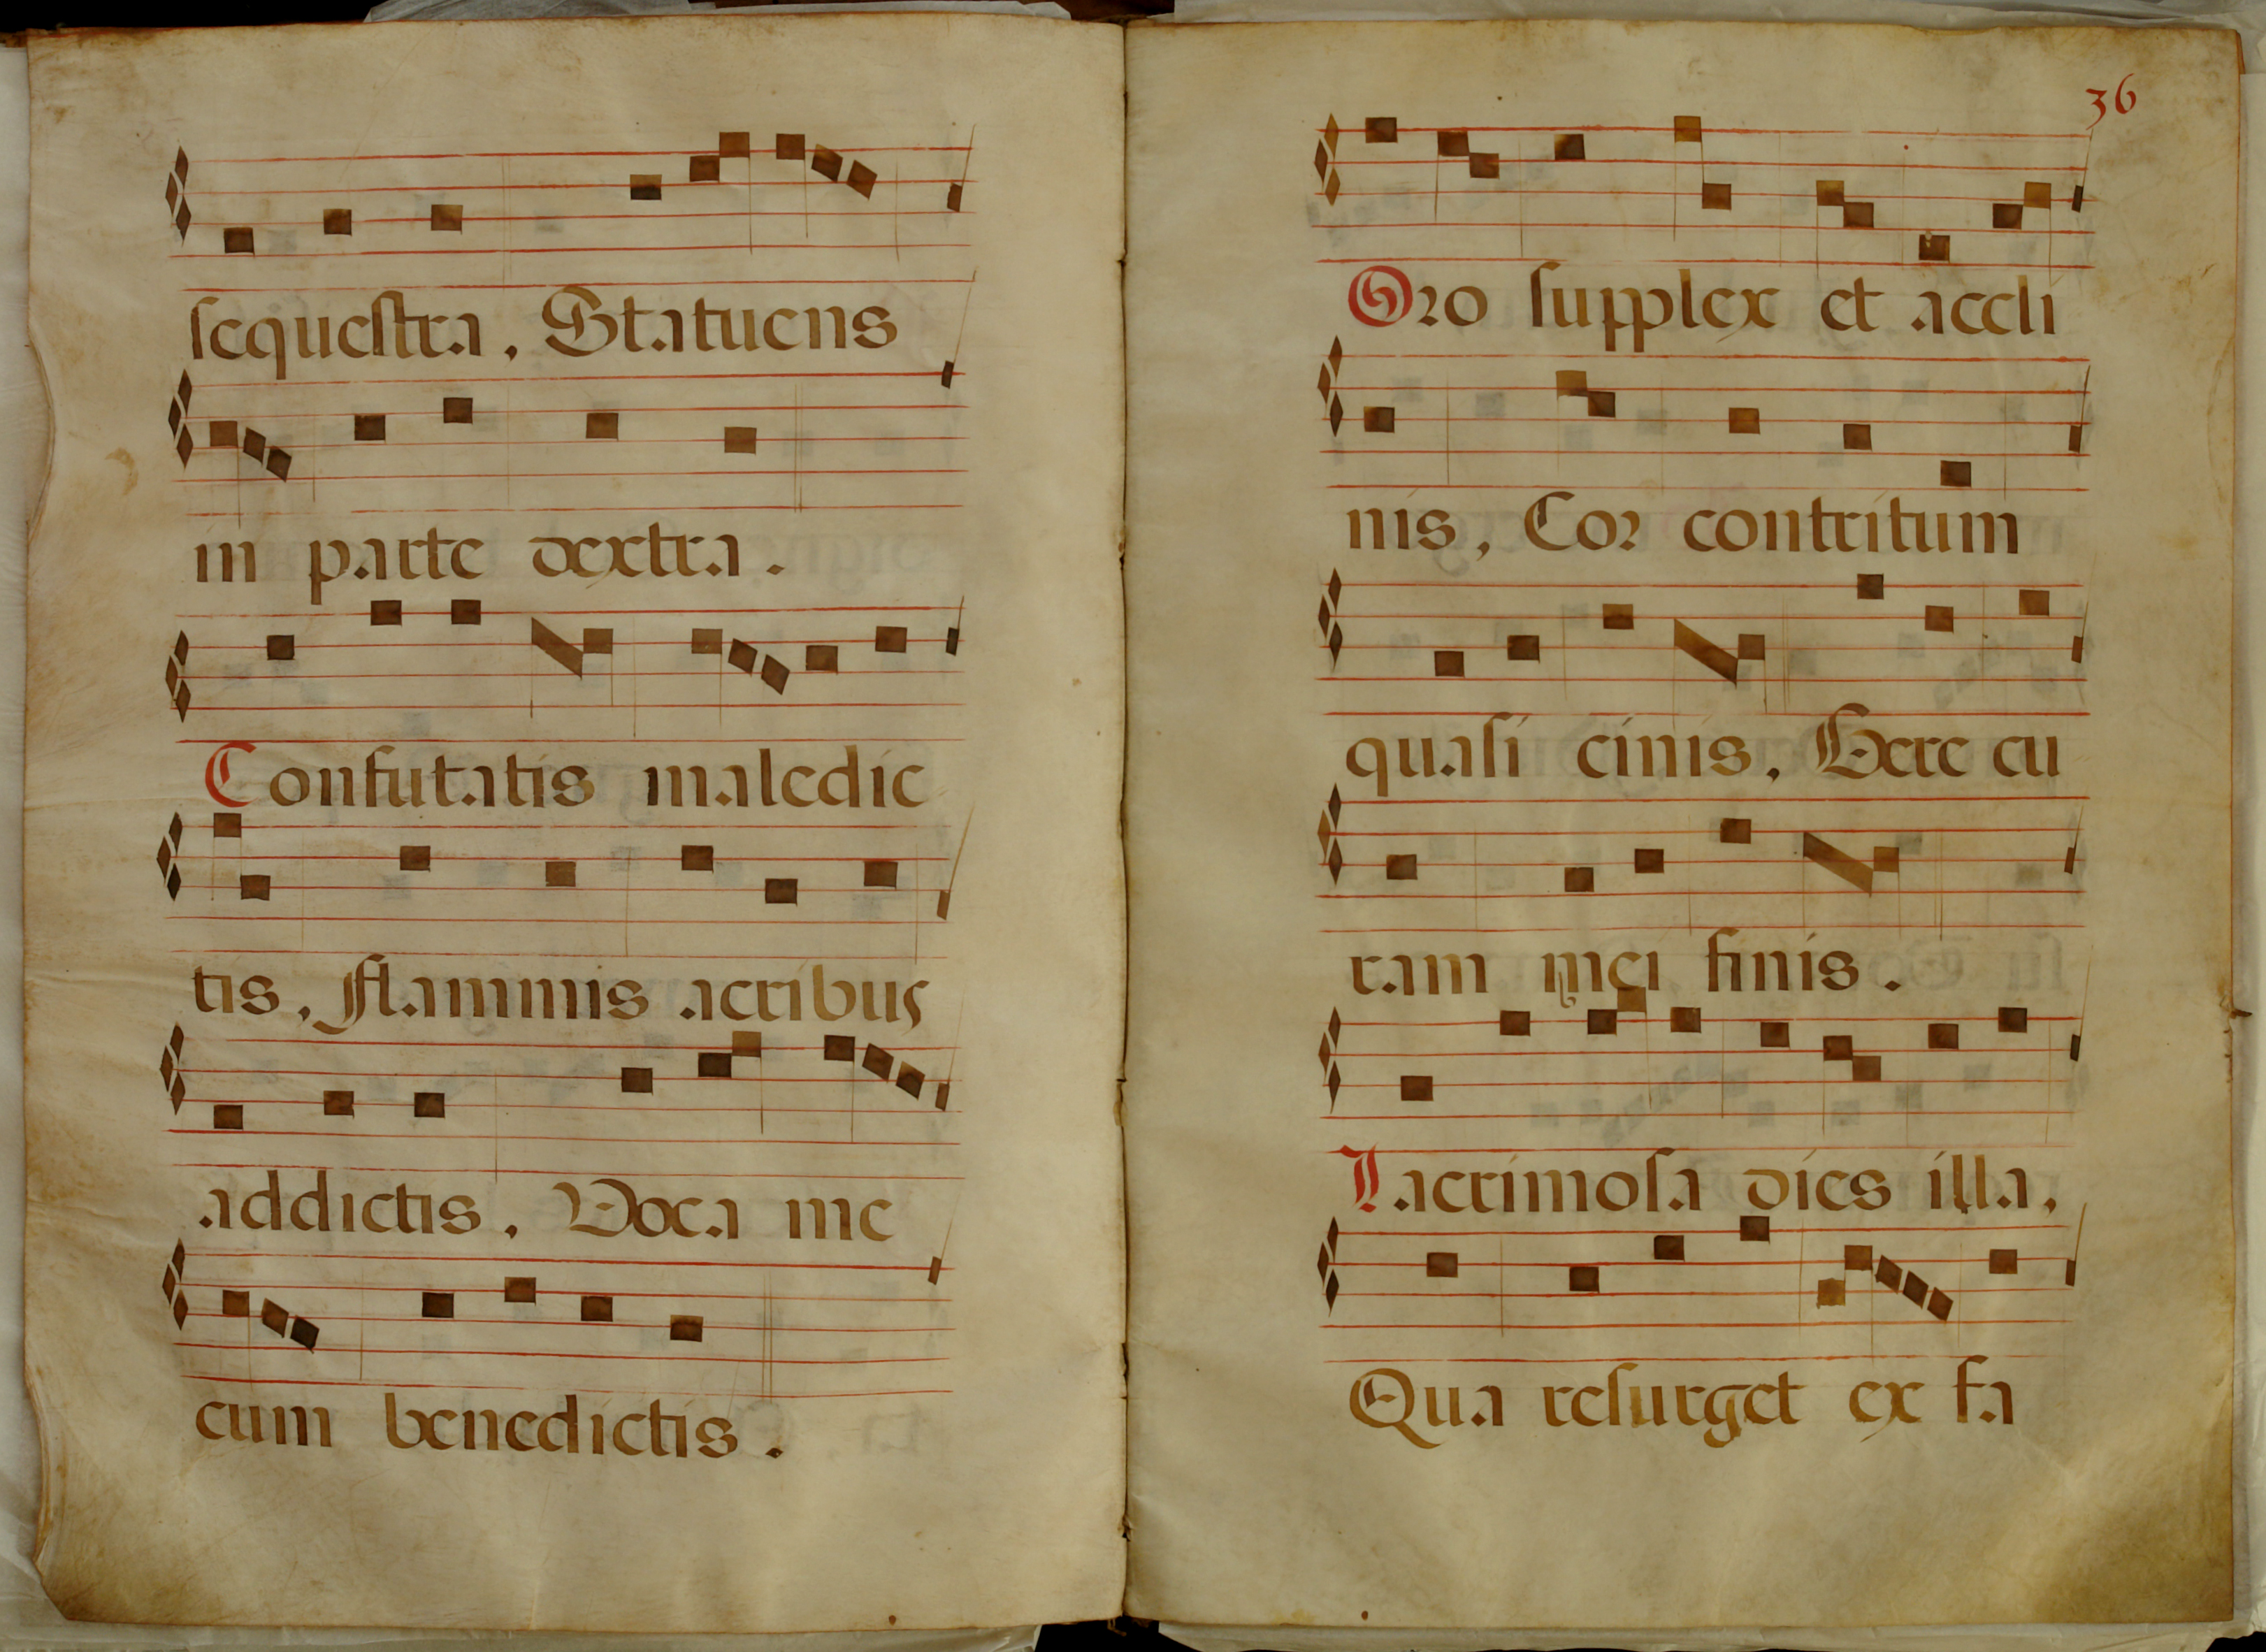 sequestra, Statuens
in parte dextra.
Confutatis maledic
tis, flammis acribus
addictis, Voca me
cum benedictis.
36
Oro supplex et accli
nis, Cor contritum
quasi cinis, Gere cu
ram mei finis.
Lacrimosa dies illa,
Qua resurget ex fa